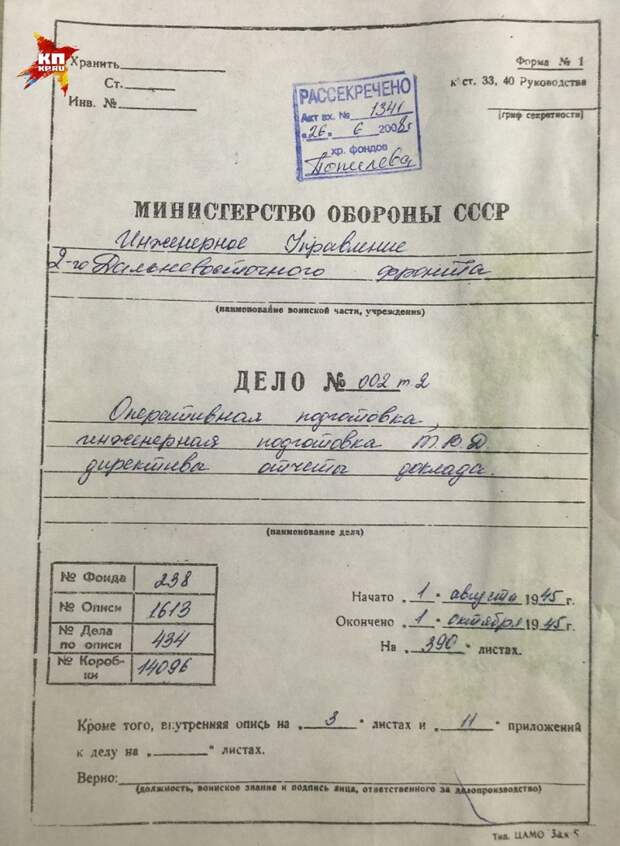 КП
KP.RU
Хранить
Ст.
Инв. №
Форма № 1
к ст. 33, 40 Руководства
(гриф секретности)
РАССЕКРЕЧЕНО
Акт вх. № 1341
„26„ 6 2008г
хр. фондов
МИНИСТЕРСТВО ОБОРОНЫ СССР
Инженерное Управление
2-го Дальневосточного фронта
(наименование воинской части, учреждения)
ДЕЛО № 002 т 2
Оперативная подготовка,
инженерная подготовка Т.В.Д
директивы отчеты доклада.
(наименование дела)
№ Фонда 238
№ Описи 1613
№ Дела по описи 434
№ Короб-ки 14096
Начато „1" августа 1945 г.
Окончено „1" октября 1945 г.
На „390" листах.
Кроме того, внутренняя опись на „3" листах и „11" приложений
к делу на „ " листах.
Верно:
(должность, воинское звание и подпись лица, ответственного за делопроизводство)
Тип. ЦАМО Зак 5